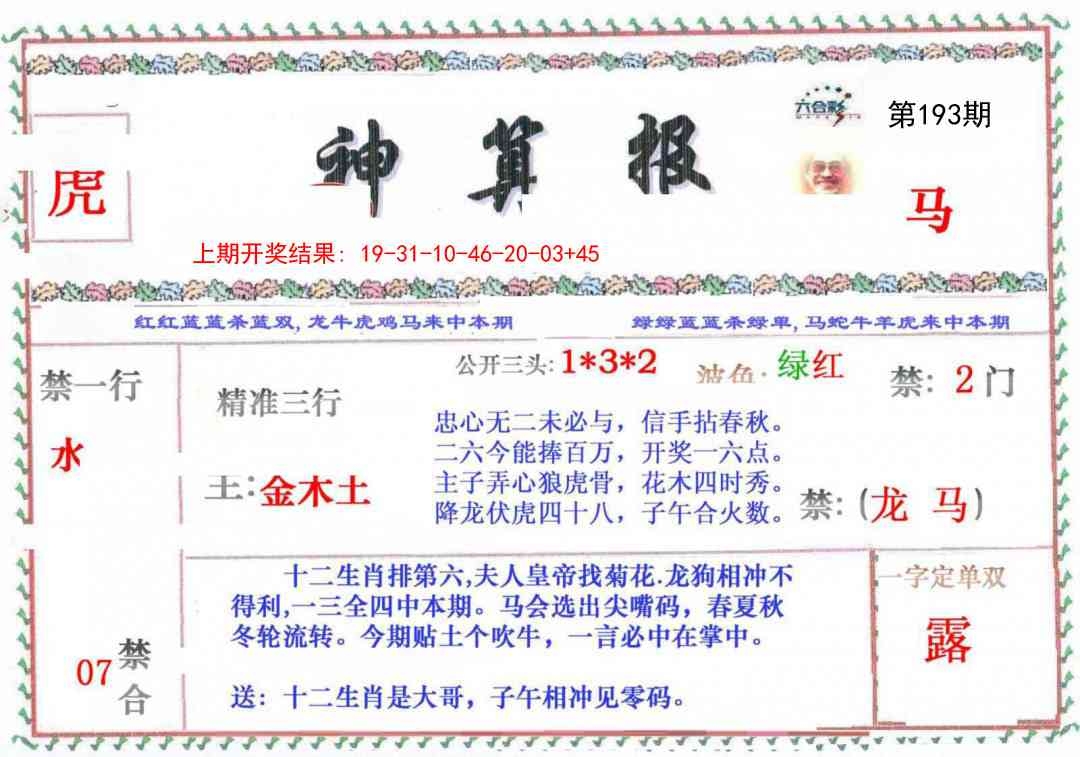 六合彩
第193期
神算报
虎
马
上期开奖结果：19-31-10-46-20-03+45
红红蓝蓝杀蓝双, 龙牛虎鸡马来中本期
绿绿蓝蓝杀绿单, 马蛇牛羊虎来中本期
公开三头: 1*3*2
波色: 绿红
禁: 2门
禁一行
水
精准三行
主: 金木土
忠心无二未必与，信手拈春秋。
二六今能捧百万，开奖一六点。
主子弄心狼虎骨，花木四时秀。
降龙伏虎四十八，子午合火数。
禁: (龙 马)
十二生肖排第六,夫人皇帝找菊花.龙狗相冲不
得利,一三全四中本期。马会选出尖嘴码，春夏秋
冬轮流转。今期贴士个吹牛，一言必中在掌中。
送：十二生肖是大哥，子午相冲见零码。
07
禁合
一字定单双
露